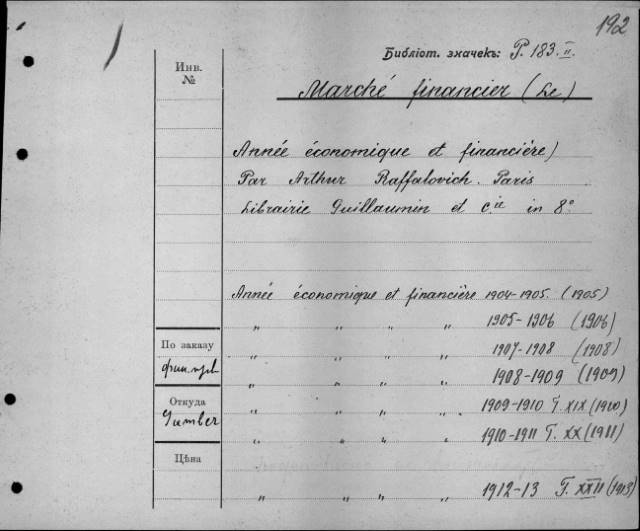 192
Библіот. значекъ: P. 183. II.
Инв. №
Marché financier (Le)
Année économique et financière)
Par Arthur Raffalovich. Paris
Librairie Guillaumin et Cie in 8°
Année économique et financière 1904-1905. (1905)
„ „ „ „ 1905-1906 (1906)
По заказу
„ „ „ „ 1907-1908 (1908)
„ „ „ „ 1908-1909 (1909)
Откуда
„ „ „ „ 1909-1910 T. XIX (1910)
„ „ „ „ 1910-1911 T. XX (1911)
Цѣна
„ „ „ „ 1912-13 T. XXII (1913)